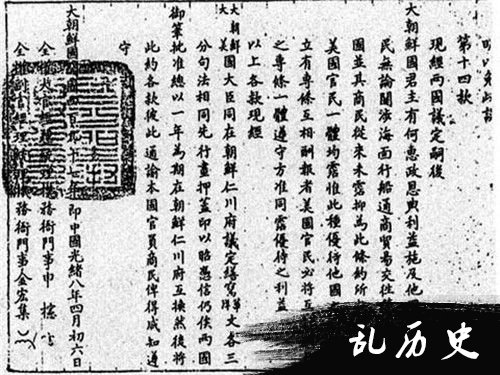 第十四款
現經兩國議定嗣後
大朝鮮國君主有何惠政恩典利益施及他
民無論關涉海面行船通商貿易交往
國並其商民從來未霑抑為此條約所
美國官民一體均霑惟此種優待他國
立有專條互相酬報者美國官民必將互
之專條一體遵守方准同霑優待之利益
以上各款現經
大朝鮮國
大美國
大臣同在朝鮮仁川府議定繕寫華洋文各三
分句法相同先行畫押蓋印以昭憑信仍俟兩國
御筆批准總以一年為期在朝鮮仁川府互換然後將
此約各款彼此通諭本國官員商民俾得咸知遵
守
大朝鮮國開國四百九十一年即中國光緒八年四月初六日
全權大官經理統理機務衙門事申櫶
全權副官經理統理機務衙門事金宏集
乱历史